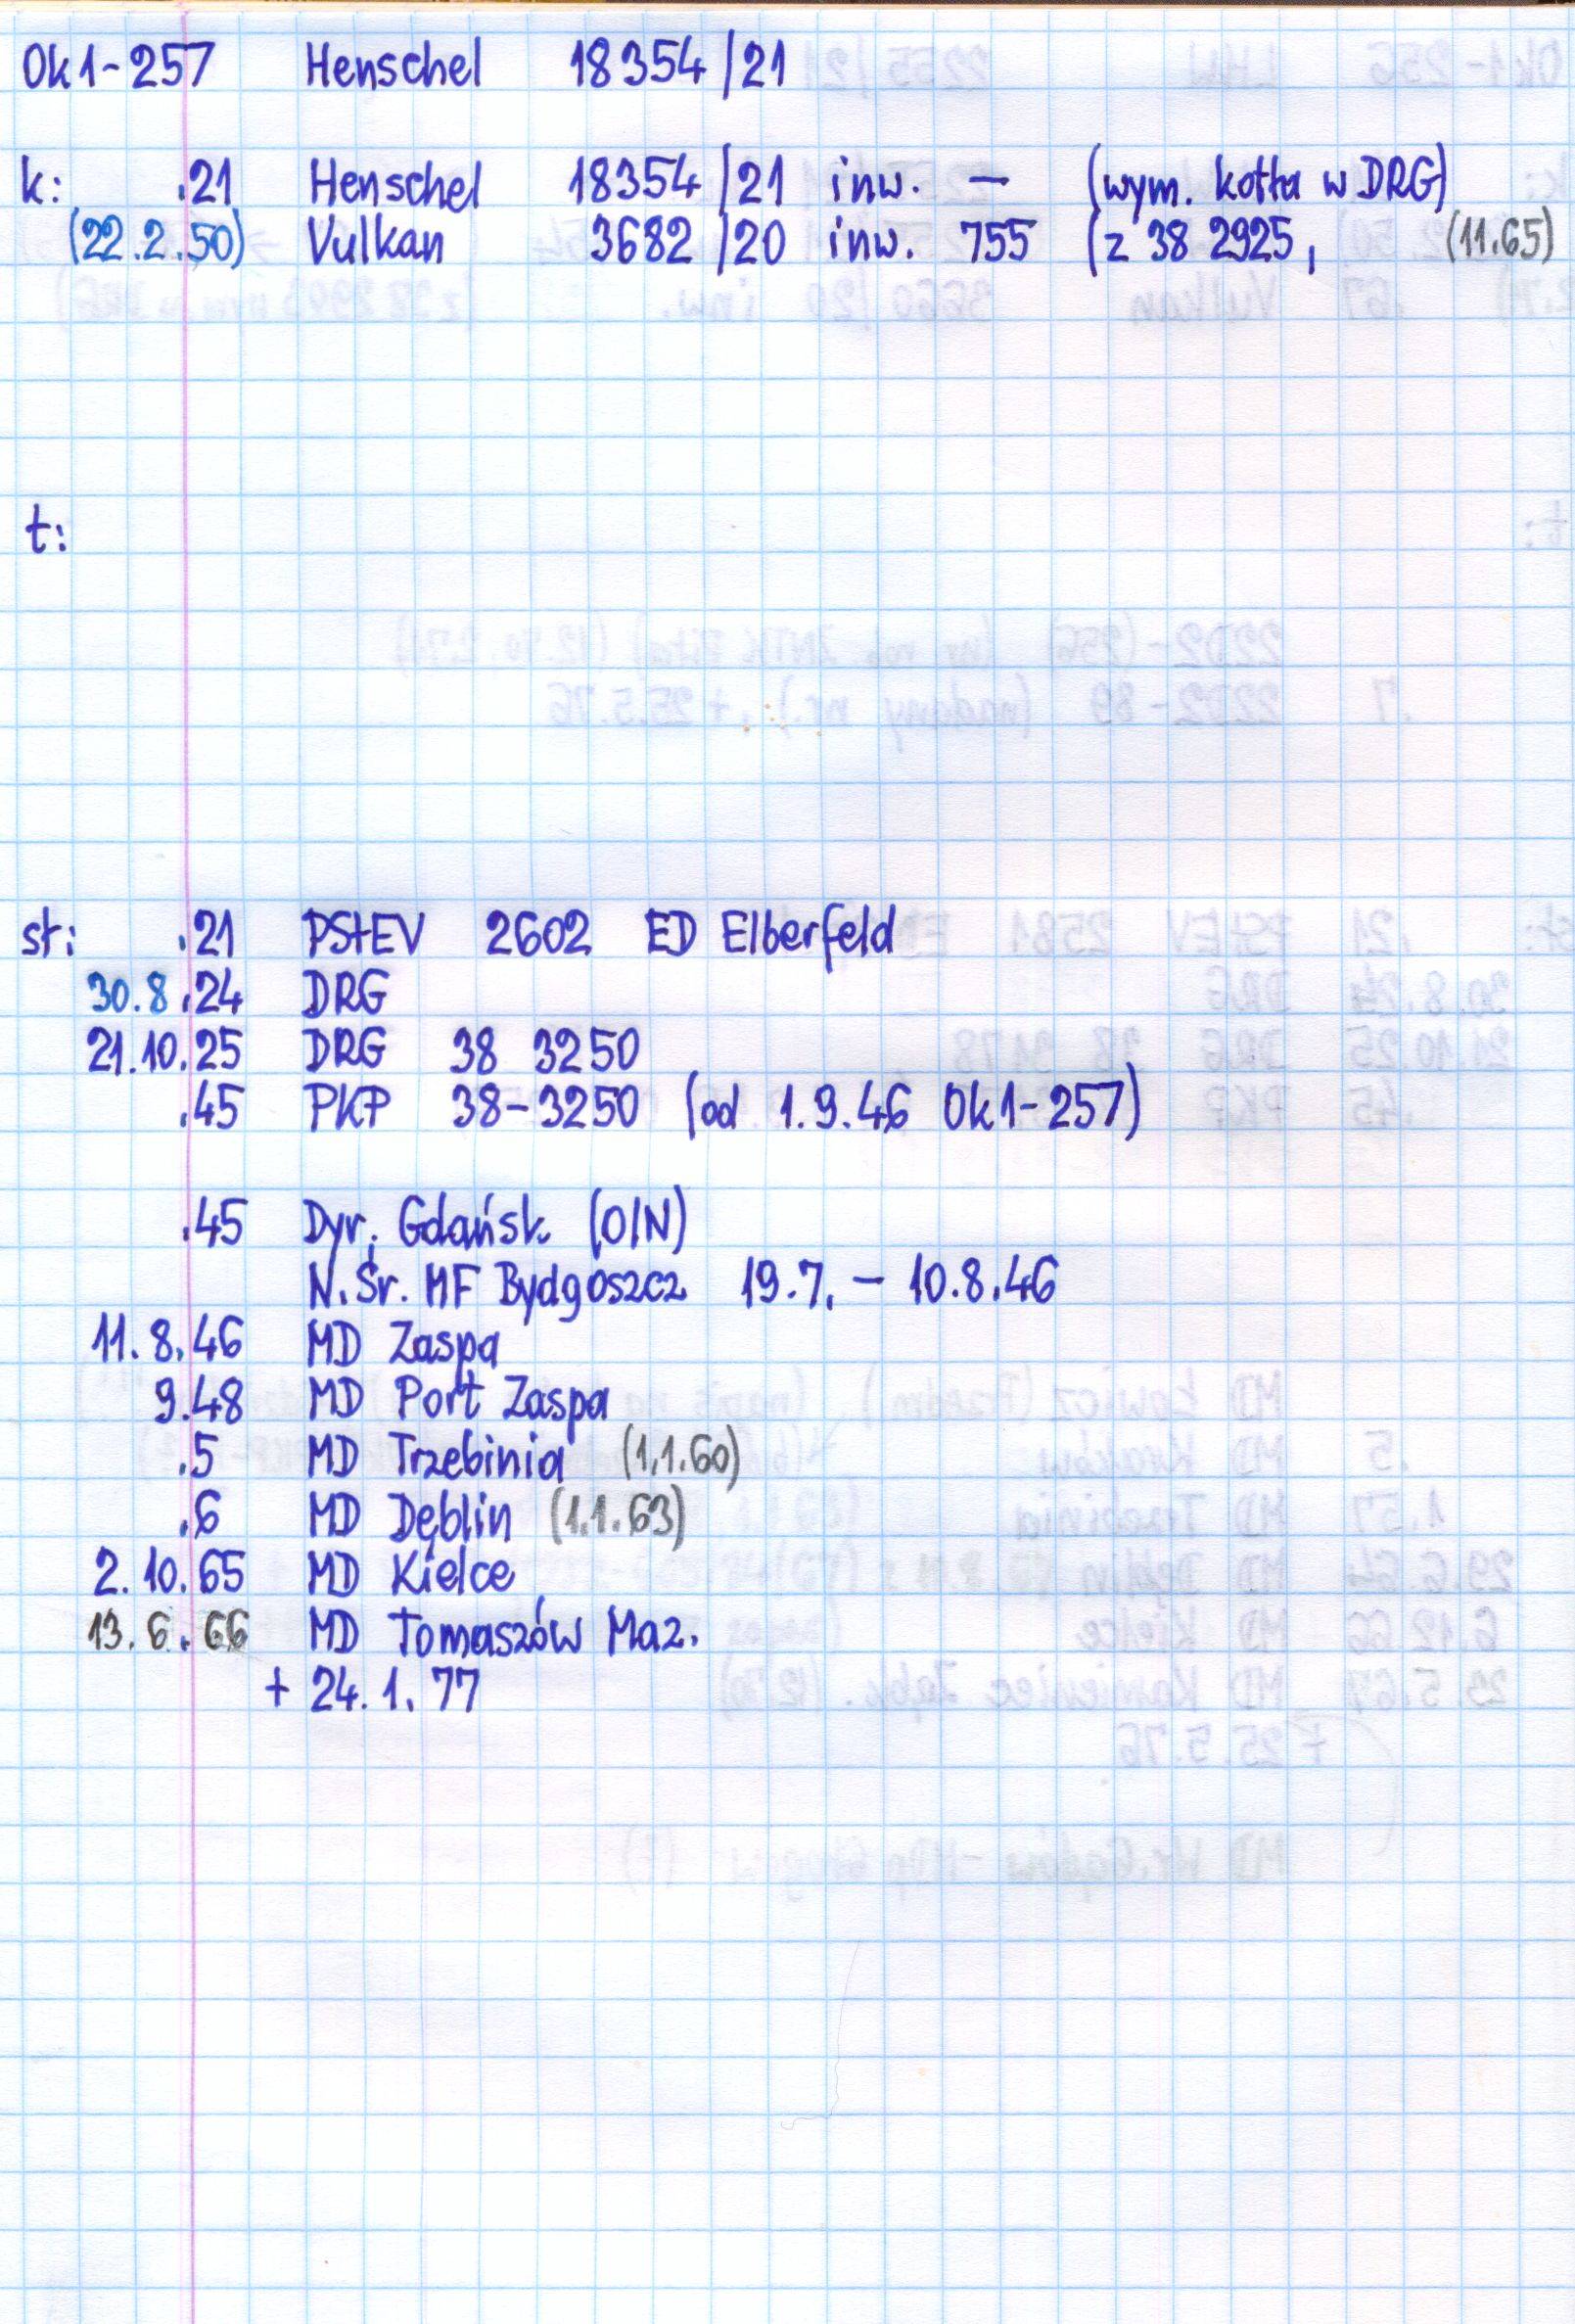 Ok1-257 Henschel 18354/21
k: .21 Henschel 18354/21 inw. — (wym. kotła w DRG)
(22.2.50) Vulkan 3682/20 inw. 755 (z 38 2925, (11.65)
t:
st: .21 PStEV 2602 ED Elberfeld
30.8.24 DRG
21.10.25 DRG 38 3250
.45 PKP 38-3250 (od 1.9.46 Ok1-257)
.45 Dyr. Gdańsk (O/N)
N.Śr. MF Bydgoszcz 19.7. – 10.8.46
11.8.46 MD Zaspa
9.48 MD Port Zaspa
.5 MD Trzebinia (1.1.60)
.6 MD Dęblin (1.1.63)
2.10.65 MD Kielce
13.6.66 MD Tomaszów Maz.
+ 24.1.77